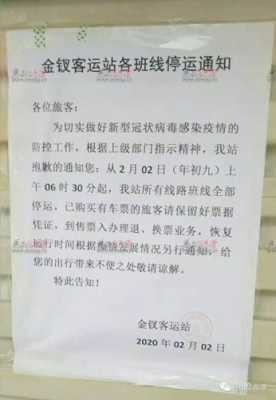 金钗客运站各班线停运通知
各位旅客：
为切实做好新型冠状病毒感染疫情的
防控工作，根据上级部门指示精神，我站
抱歉的通知您：从 2 月 02 日（年初九）上
午 06 时 30 分起，我站所有线路班线全部
停运，已购买有车票的旅客请保留好票据
凭证，到售票入办理退、换票业务，恢复
运行时间根据疫情发展情况另行通知，给
您的出行带来不便之处敬请谅解。
特此告知！
金钗客运站
2020 年 02 月 02 日